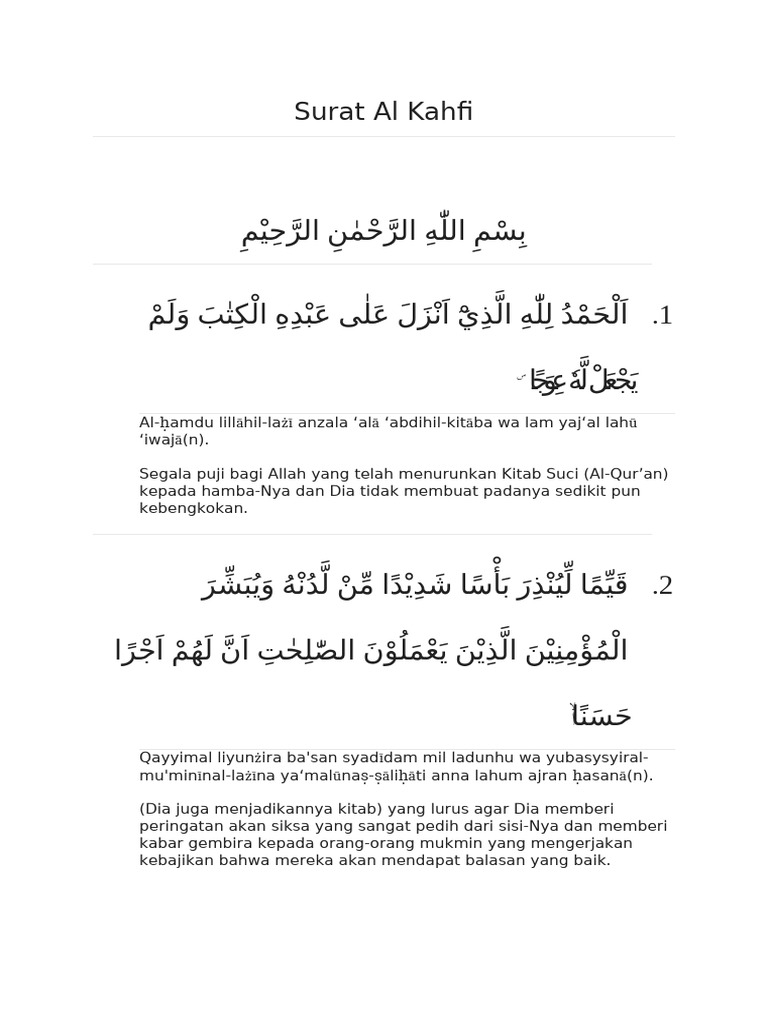 Surat Al Kahfi
بِسْمِ اللّٰهِ الرَّحْمٰنِ الرَّحِيْمِ
1. اَلْحَمْدُ لِلّٰهِ الَّذِيْٓ اَنْزَلَ عَلٰى عَبْدِهِ الْكِتٰبَ وَلَمْ
يَجْعَلْ لَّهٗ عِوَجًا ۜ
Al-ḥamdu lillāhil-lażī anzala ‘alā ‘abdihil-kitāba wa lam yaj‘al lahū
‘iwajā(n).
Segala puji bagi Allah yang telah menurunkan Kitab Suci (Al-Qur’an)
kepada hamba-Nya dan Dia tidak membuat padanya sedikit pun
kebengkokan.
2. قَيِّمًا لِّيُنْذِرَ بَأْسًا شَدِيْدًا مِّنْ لَّدُنْهُ وَيُبَشِّرَ
الْمُؤْمِنِيْنَ الَّذِيْنَ يَعْمَلُوْنَ الصّٰلِحٰتِ اَنَّ لَهُمْ اَجْرًا
حَسَنًاۙ
Qayyimal liyunżira ba'san syadīdam mil ladunhu wa yubasysyiral-
mu'minīnal-lażīna ya‘malūnaṣ-ṣāliḥāti anna lahum ajran ḥasanā(n).
(Dia juga menjadikannya kitab) yang lurus agar Dia memberi
peringatan akan siksa yang sangat pedih dari sisi-Nya dan memberi
kabar gembira kepada orang-orang mukmin yang mengerjakan
kebajikan bahwa mereka akan mendapat balasan yang baik.